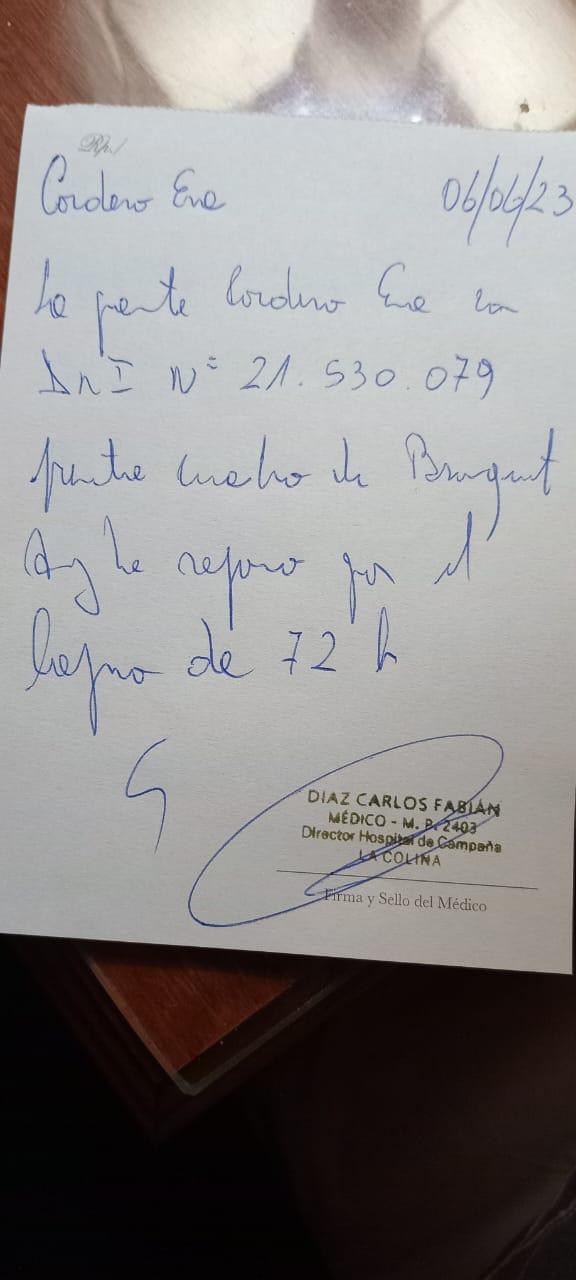 Rp./
Cordero Eva 06/06/23
La pcente Cordero Eva con
DNI N° 21.530.079
presenta cuadro de
reposo por el
lapso de 72 h
DIAZ CARLOS FABIÁN
MÉDICO - M. P. 2403
Director Hospital de Campaña
LA COLINA
Firma y Sello del Médico